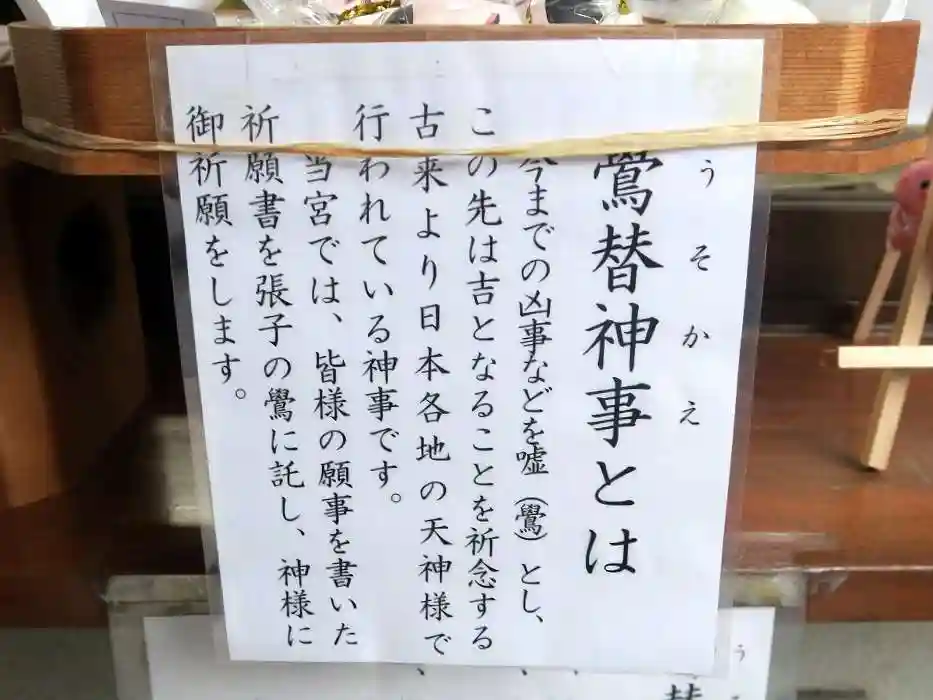 うそかえ
鷽替神事とは
今までの凶事などを嘘（鷽）とし、
この先は吉となることを祈念する
古来より日本各地の天神様で
行われている神事です。
当宮では、皆様の願事を書いた
祈願書を張子の鷽に託し、神様に
御祈願をします。
う
替